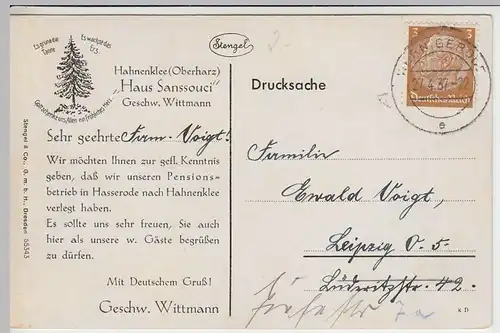 Es grüne die Tanne
Es wachse das Erz.
Gott schenke uns Allen ein fröhliches Herz
Stengel
Hahnenklee (Oberharz)
„Haus Sanssouci"
Geschw. Wittmann
Sehr geehrte Fam. Voigt!
Wir möchten Ihnen zur gefl. Kenntnis
geben, daß wir unseren Pensions-
betrieb in Hasserode nach Hahnenklee
verlegt haben.
Es sollte uns sehr freuen, Sie auch
hier als unsere w. Gäste begrüßen
zu dürfen.
Mit Deutschem Gruß!
Geschw. Wittmann
Stengel & Co., G. m. b. H., Dresden 55343
Drucksache
3
3
Deutsches Reich
WERNIGERODE
e
Familie
Ewald Voigt,
Leipzig O. 5
Lüderitzstr. 42.
7a
R D